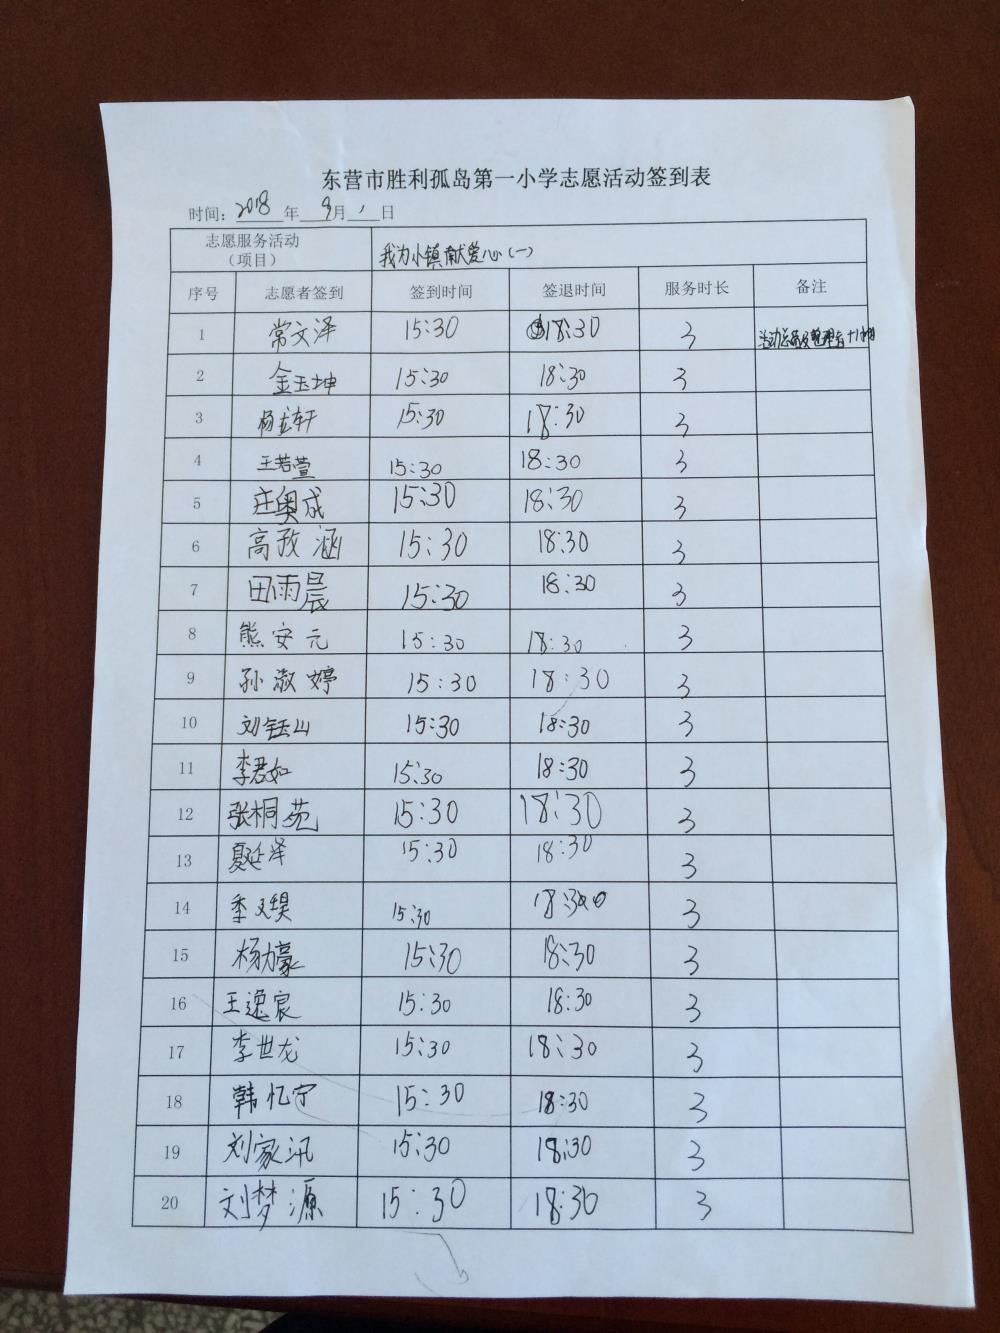 东营市胜利孤岛第一小学志愿活动签到表
时间：2018年9月1日
志愿服务活动（项目） 我为小镇献爱心（一）
序号 志愿者签到 签到时间 签退时间 服务时长 备注
1 常文泽 15:30 18:30 3 活动总
2 金玉坤 15:30 18:30 3
3 杨轩 15:30 18:30 3
4 王若萱 15:30 18:30 3
5 庄奥成 15:30 18:30 3
6 高孜涵 15:30 18:30 3
7 田雨晨 15:30 18:30 3
8 熊安元 15:30 18:30 3
9 孙淑婷 15:30 18:30 3
10 刘钰山 15:30 18:30 3
11 李君如 15:30 18:30 3
12 张桐苑 15:30 18:30 3
13 夏延泽 15:30 18:30 3
14 季又昊 15:30 18:30 3
15 杨力豪 15:30 18:30 3
16 王逸宸 15:30 18:30 3
17 李世龙 15:30 18:30 3
18 韩忆宁 15:30 18:30 3
19 刘家汛 15:30 18:30 3
20 刘梦源 15:30 18:30 3